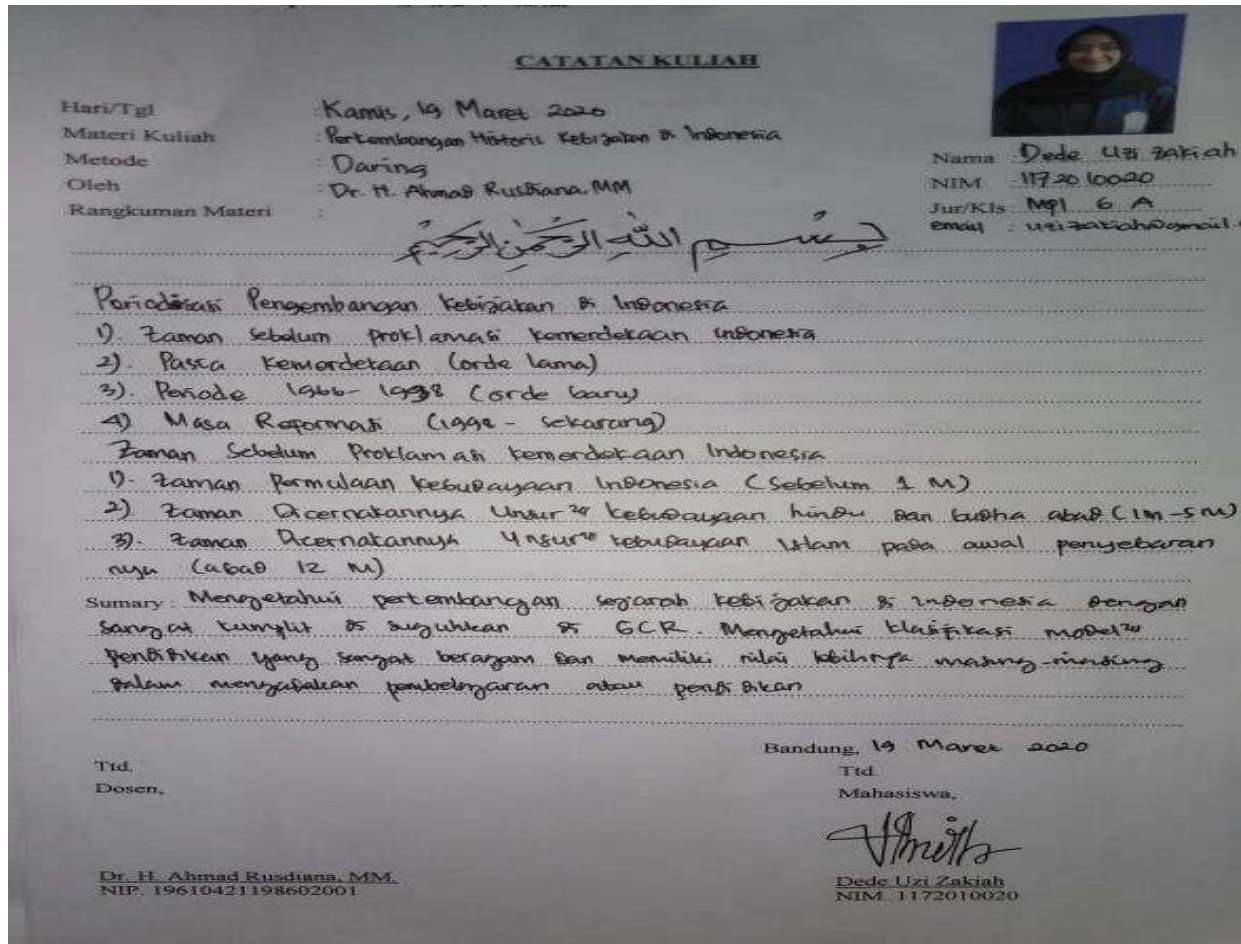 CATATAN KULIAH
Hari/Tgl : Kamis, 19 Maret 2020
Materi Kuliah : Perkembangan Historis Kebijakan di Indonesia
Metode : Daring
Oleh : Dr. H. Ahmad Rusdiana, MM
Rangkuman Materi :
Nama : Dede Uzi Zakiah
NIM : 1172010020
Jur/Kls : MPI 6 A
email : uzizakiah@gmail.
بسم الله الرحمن الرحيم
Periodisasi Pengembangan Kebijakan di Indonesia
1). Zaman sebelum proklamasi kemerdekaan Indonesia
2). Pasca Kemerdekaan (orde lama)
3). Periode 1966-1998 (orde baru)
4) Masa Reformasi (1998 - sekarang)
Zaman Sebelum Proklamasi kemerdekaan Indonesia
1). Zaman Permulaan Kebudayaan Indonesia (Sebelum 1 M)
2) Zaman Dicernakannya Unsur" kebudayaan hindu dan budha abad (1M-5M)
3). Zaman Dicernakannya Unsur" kebudayaan Islam pada awal penyebaran
nya (abad 12 M)
Sumary : Mengetahui perkembangan sejarah kebijakan di Indonesia dengan
sangat kumplit di suguhkan di GCR. Mengetahui klasifikasi model"
pendidikan yang sangat beragam dan memiliki nilai lebihnya masing-masing
dalam mengadakan pembelajaran atau pendidikan
Bandung, 19 Maret 2020
Ttd.
Dosen,
Ttd
Mahasiswa,
Dr. H. Ahmad Rusdiana, MM.
NIP. 19610421198602001
Dede Uzi Zakiah
NIM. 1172010020